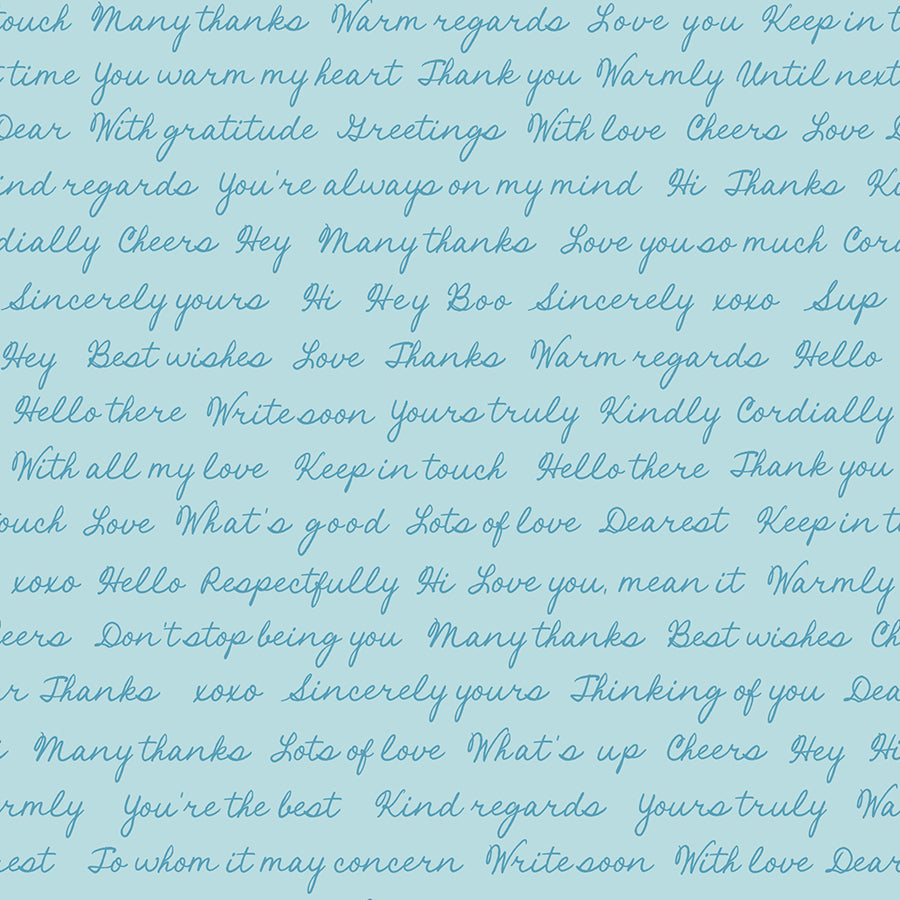 touch Many thanks Warm regards Love you Keep in t
time You warm my heart Thank you Warmly Until next
Dear With gratitude Greetings With love Cheers Love D
ind regards You're always on my mind Hi Thanks Ki
dially Cheers Hey Many thanks Love you so much Cord
Sincerely yours Hi Hey Boo Sincerely xoxo Sup
Hey Best wishes Love Thanks Warm regards Hello
Hello there Write soon Yours truly Kindly Cordially
With all my love Keep in touch Hello there Thank you
ouch Love What's good Lots of love Dearest Keep in to
xoxo Hello Respectfully Hi Love you, mean it Warmly
eers Don't stop being you Many thanks Best wishes Ch
ar Thanks xoxo Sincerely yours Thinking of you Dea
Many thanks Lots of love What's up Cheers Hey Hi
rmly You're the best Kind regards Yours truly Wa
rest To whom it may concern Write soon With love Dear